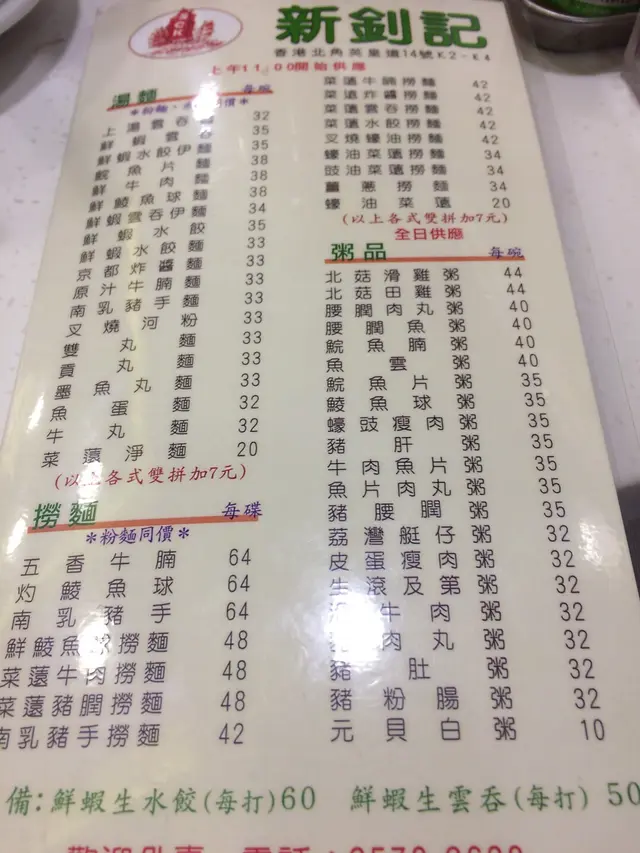 新釗記
香港北角英皇道14號K2-K4
上午11:00開始供應
湯麵 每碗
上湯雲吞麵 32
鮮蝦雲吞 35
鮮蝦水餃伊麵 35
鯇魚片麵 38
鮮牛肉麵 38
鮮鯪魚球麵 38
鮮蝦雲吞伊麵 34
鮮蝦水餃 35
鮮蝦水餃麵 33
京都炸醬麵 33
原汁牛腩麵 33
南乳豬手麵 33
叉燒河粉 33
雙丸麵 33
貢丸麵 33
墨魚丸麵 33
魚蛋麵 32
牛丸麵 32
菜薳淨麵 20
(以上各式雙拼加7元)
撈麵 每碟
*粉麵同價*
五香牛腩 64
灼鯪魚球 64
南乳豬手 64
鮮鯪魚球撈麵 48
菜薳牛肉撈麵 48
菜薳豬膶撈麵 48
南乳豬手撈麵 42
菜薳牛腩撈麵 42
菜薳炸醬撈麵 42
菜薳雲吞撈麵 42
菜薳水餃撈麵 42
叉燒蠔油撈麵 42
蠔油菜薳撈麵 34
豉油菜薳撈麵 34
薑蔥撈麵 34
蠔油菜薳 20
(以上各式雙拼加7元)
全日供應
粥品 每碗
北菇滑雞粥 44
北菇田雞粥 44
腰膶肉丸粥 40
腰膶魚粥 40
鯇魚腩粥 40
魚雲粥 40
鯇魚片粥 35
鯪魚球粥 35
蠔豉瘦肉粥 35
豬肝粥 35
牛肉魚片粥 35
魚片肉丸粥 35
豬腰膶粥 35
荔灣艇仔粥 32
皮蛋瘦肉粥 32
生滾及第粥 32
牛肉粥 32
肉丸粥 32
豬肚粥 32
豬粉腸粥 32
元貝白粥 10
備:鮮蝦生水餃(每打)60 鮮蝦生雲吞(每打) 50